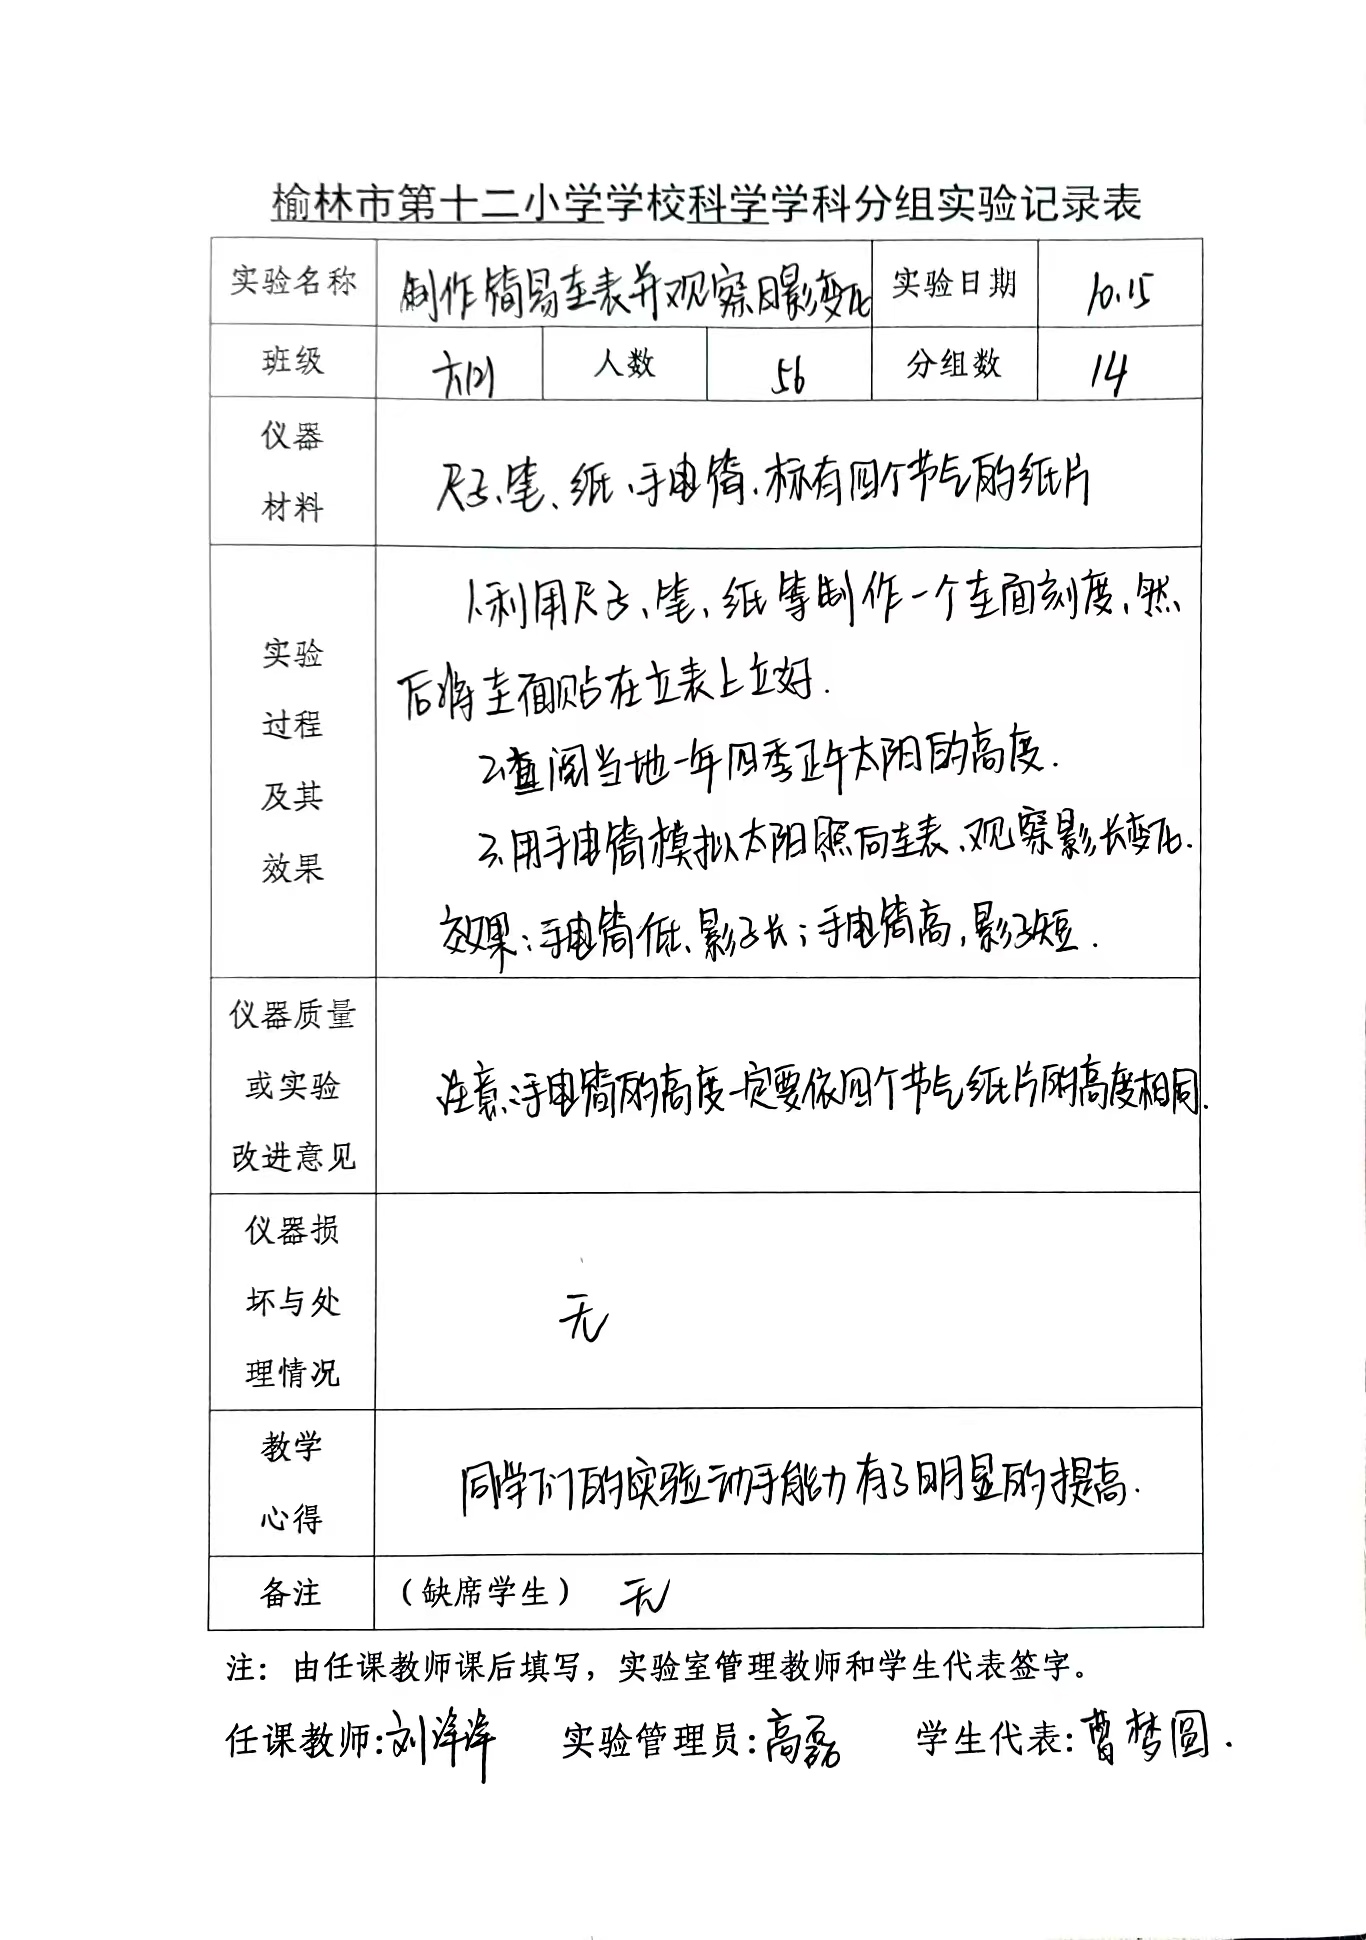 榆林市第十二小学学校科学学科分组实验记录表
实验名称 制作简易圭表并观察日影变化 实验日期 10.15
班级 六(2) 人数 56 分组数 14
仪器
材料
尺子、笔、纸、手电筒、标有四个节气的纸片
实验
过程
及其
效果
1.利用尺子、笔、纸等制作一个圭面刻度,然
后将圭面贴在立表上立好.
2.查阅当地一年四季正午太阳的高度.
3.用手电筒模拟太阳照向圭表、观察影长变化.
效果:手电筒低、影子长;手电筒高,影子短.
仪器质量
或实验
改进意见
注意:手电筒的高度一定要依四个节气纸片的高度相同.
仪器损
坏与处
理情况
无
教学
心得
同学们的实验动手能力有了明显的提高.
备注 (缺席学生) 无
注:由任课教师课后填写,实验室管理教师和学生代表签字。
任课教师:刘洋洋 实验管理员:高磊 学生代表:曹梦圆.